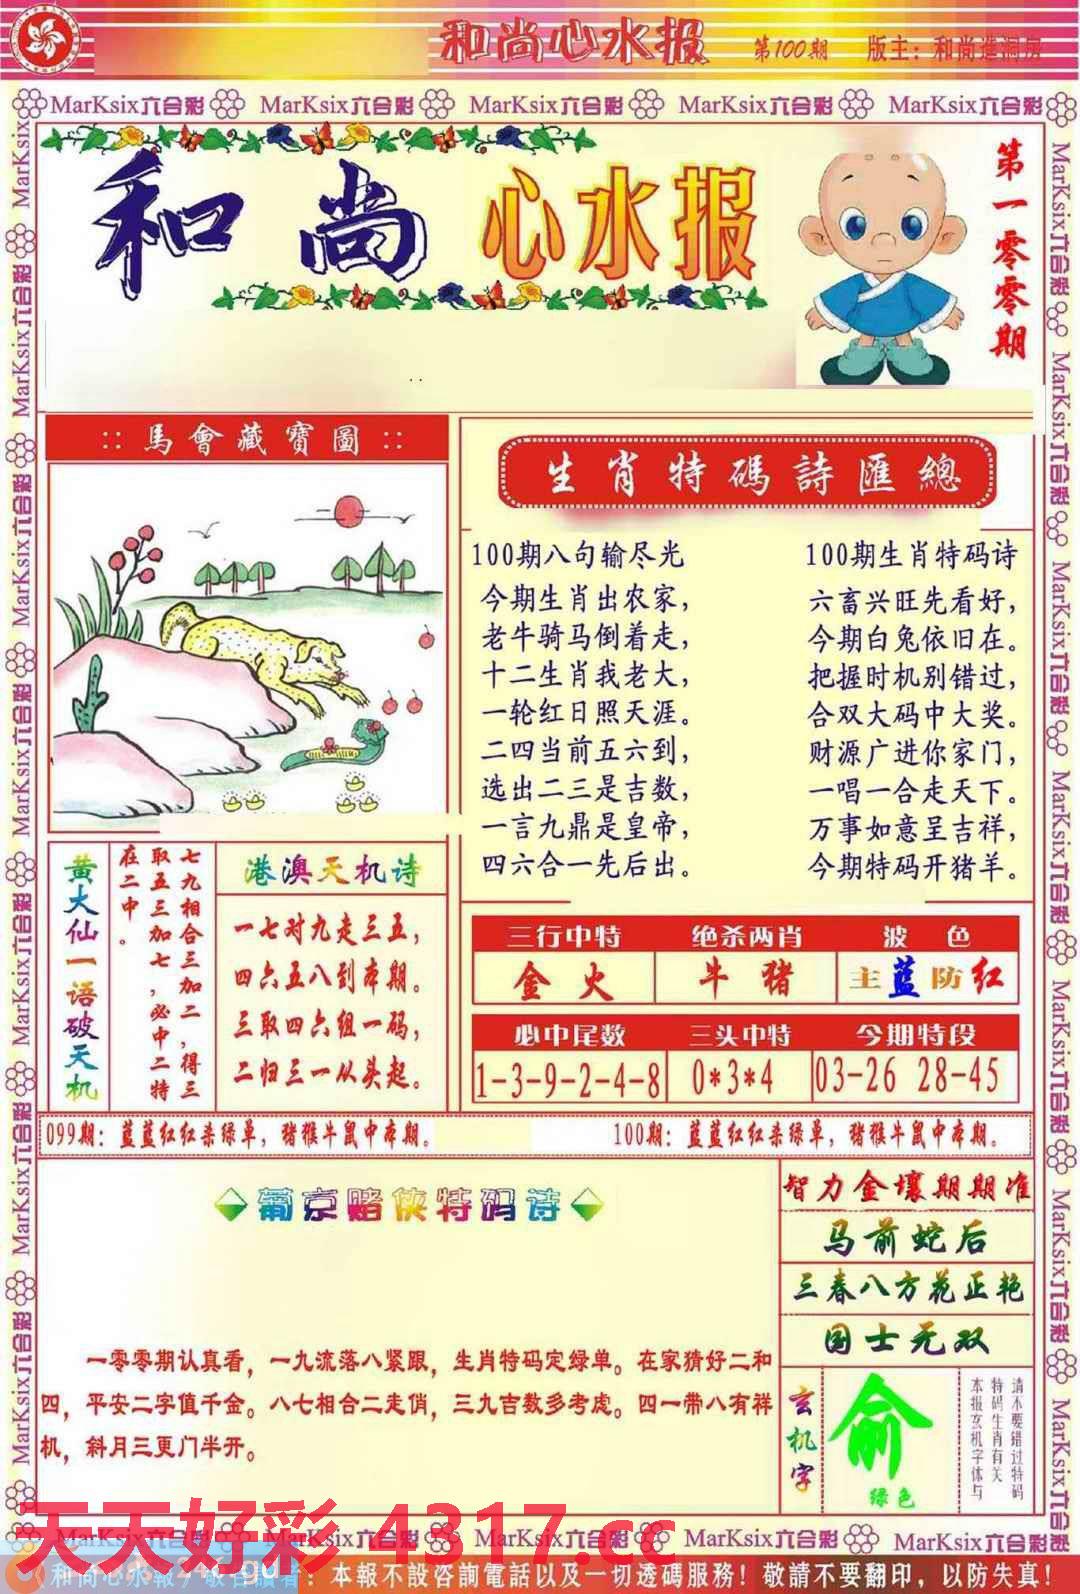 和尚心水报 第100期 版主：和尚進洞房
MarKsix六合彩 MarKsix六合彩 MarKsix六合彩 MarKsix六合彩 MarKsix六合彩
和尚心水报
第一零零期
::馬會藏寶圖::
生肖特碼詩匯總
100期八句输尽光
今期生肖出农家，
老牛骑马倒着走，
十二生肖我老大，
一轮红日照天涯。
二四当前五六到，
选出二三是吉数，
一言九鼎是皇帝，
四六合一先后出。
100期生肖特码诗
六畜兴旺先看好，
今期白兔依旧在。
把握时机别错过，
合双大码中大奖。
财源广进你家门，
一唱一合走天下。
万事如意呈吉祥，
今期特码开猪羊。
黄大仙一语破天机
七九相合三加二，得三
取五三加七，必中二特
在二中。
港澳天机诗
一七对九走三五，
四六五八到本期。
三取四六组一码，
二归三一从头起。
三行中特 绝杀两肖 波色
金火 牛猪 主蓝防红
必中尾数 三头中特 今期特段
1-3-9-2-4-8 0*3*4 03-26 28-45
099期：蓝蓝红红杀绿单，猪猴牛鼠中本期。 100期：蓝蓝红红杀绿单，猪猴牛鼠中本期。
葡京赌侠特码诗
一零零期认真看，一九流落八紧跟，生肖特码定绿单。在家猜好二和
四，平安二字值千金。八七相合二走俏，三九吉数多考虑。四一带八有祥
机，斜月三更门半开。
智力金壤期期准
马前蛇后
三春八方花正艳
国士无双
玄机字
俞
绿色
请不要错过特码
特码生肖有关
本报玄机字体与
MarKsix六合彩 MarKsix六合彩 MarKsix六合彩 MarKsix六合彩 MarKsix六合彩
天天好彩 4317.cc
和尚心水報/敬告讀者：本報不設咨詢電話以及一切透碼服務！敬請不要翻印，以防失真！